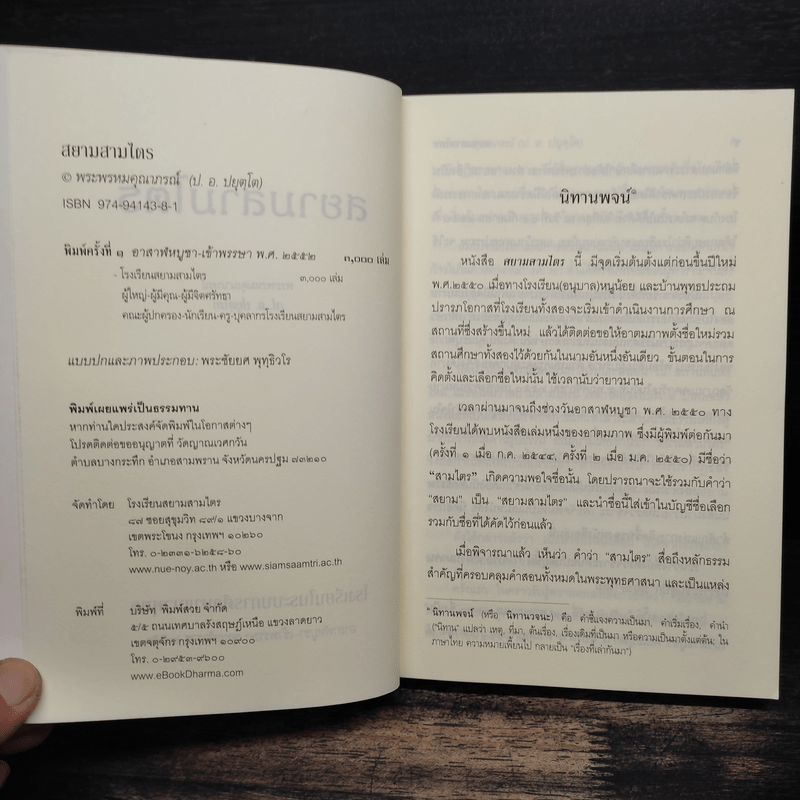 สยามสามไตร
© พระพรหมคุณาภรณ์ (ป. อ. ปยุตฺโต)
ISBN 974-94143-8-1
พิมพ์ครั้งที่ ๑ อาสาฬหบูชา-เข้าพรรษา พ.ศ. ๒๕๕๒ ๓,๐๐๐ เล่ม
- โรงเรียนสยามสามไตร ๓,๐๐๐ เล่ม
ผู้ใหญ่-ผู้มีคุณ-ผู้มีจิตศรัทธา
คณะผู้ปกครอง-นักเรียน-ครู-บุคลากรโรงเรียนสยามสามไตร
แบบปกและภาพประกอบ: พระชัยยศ พุทฺธิวโร
พิมพ์เผยแพร่เป็นธรรมทาน
หากท่านใดประสงค์จัดพิมพ์ในโอกาสต่างๆ
โปรดติดต่อขออนุญาตที่ วัดญาณเวศกวัน
ตำบลบางกระทึก อำเภอสามพราน จังหวัดนครปฐม ๗๓๒๑๐
จัดทำโดย โรงเรียนสยามสามไตร
๘๗ ซอยสุขุมวิท ๘๙/๑ แขวงบางจาก
เขตพระโขนง กรุงเทพฯ ๑๐๒๖๐
โทร. ๐-๒๓๓๑-๖๒๕๘-๖๐
www.nue-noy.ac.th หรือ www.siamsaamtri.ac.th
พิมพ์ที่ บริษัท พิมพ์สวย จำกัด
๕/๕ ถนนเทศบาลรังสฤษฏ์เหนือ แขวงลาดยาว
เขตจตุจักร กรุงเทพฯ ๑๐๙๐๐
โทร. ๐-๒๙๕๓-๙๖๐๐
www.eBookDharma.com
นิทานพจน์*
หนังสือ สยามสามไตร นี้ มีจุดเริ่มต้นตั้งแต่ก่อนขึ้นปีใหม่
พ.ศ.๒๕๕๐ เมื่อทางโรงเรียน(อนุบาล)หนูน้อย และบ้านพุทธประถม
ปรารภโอกาสที่โรงเรียนทั้งสองจะเริ่มเข้าดำเนินงานการศึกษา ณ
สถานที่ซึ่งสร้างขึ้นใหม่ แล้วได้ติดต่อขอให้อาตมภาพตั้งชื่อใหม่รวม
สถานศึกษาทั้งสองไว้ด้วยกันในนามอันหนึ่งอันเดียว ขั้นตอนในการ
คิดตั้งและเลือกชื่อใหม่นั้น ใช้เวลานับว่ายาวนาน
เวลาผ่านมาจนถึงช่วงวันอาสาฬหบูชา พ.ศ. ๒๕๕๐ ทาง
โรงเรียนได้พบหนังสือเล่มหนึ่งของอาตมภาพ ซึ่งมีผู้พิมพ์ต่อกันมา
(ครั้งที่ ๑ เมื่อ ก.ค. ๒๕๔๔, ครั้งที่ ๒ เมื่อ ม.ค. ๒๕๕๐) มีชื่อว่า
“สามไตร” เกิดความพอใจชื่อนั้น โดยปรารถนาจะใช้รวมกับคำว่า
“สยาม” เป็น “สยามสามไตร” และนำชื่อนี้ใส่เข้าในบัญชีชื่อเลือก
รวมกับชื่อที่ได้คัดไว้ก่อนแล้ว
เมื่อพิจารณาแล้ว เห็นว่า คำว่า “สามไตร” สื่อถึงหลักธรรม
สำคัญที่ครอบคลุมคำสอนทั้งหมดในพระพุทธศาสนา และเป็นแหล่ง
* นิทานพจน์ (หรือ นิทานวจนะ) คือ คำชี้แจงความเป็นมา, คำเริ่มเรื่อง, คำนำ
(“นิทาน” แปลว่า เหตุ, ที่มา, ต้นเรื่อง, เรื่องเดิมที่เป็นมา หรือความเป็นมาตั้งแต่ต้น; ใน
ภาษาไทย ความหมายเพี้ยนไป กลายเป็น “เรื่องที่เล่ากันมา”)